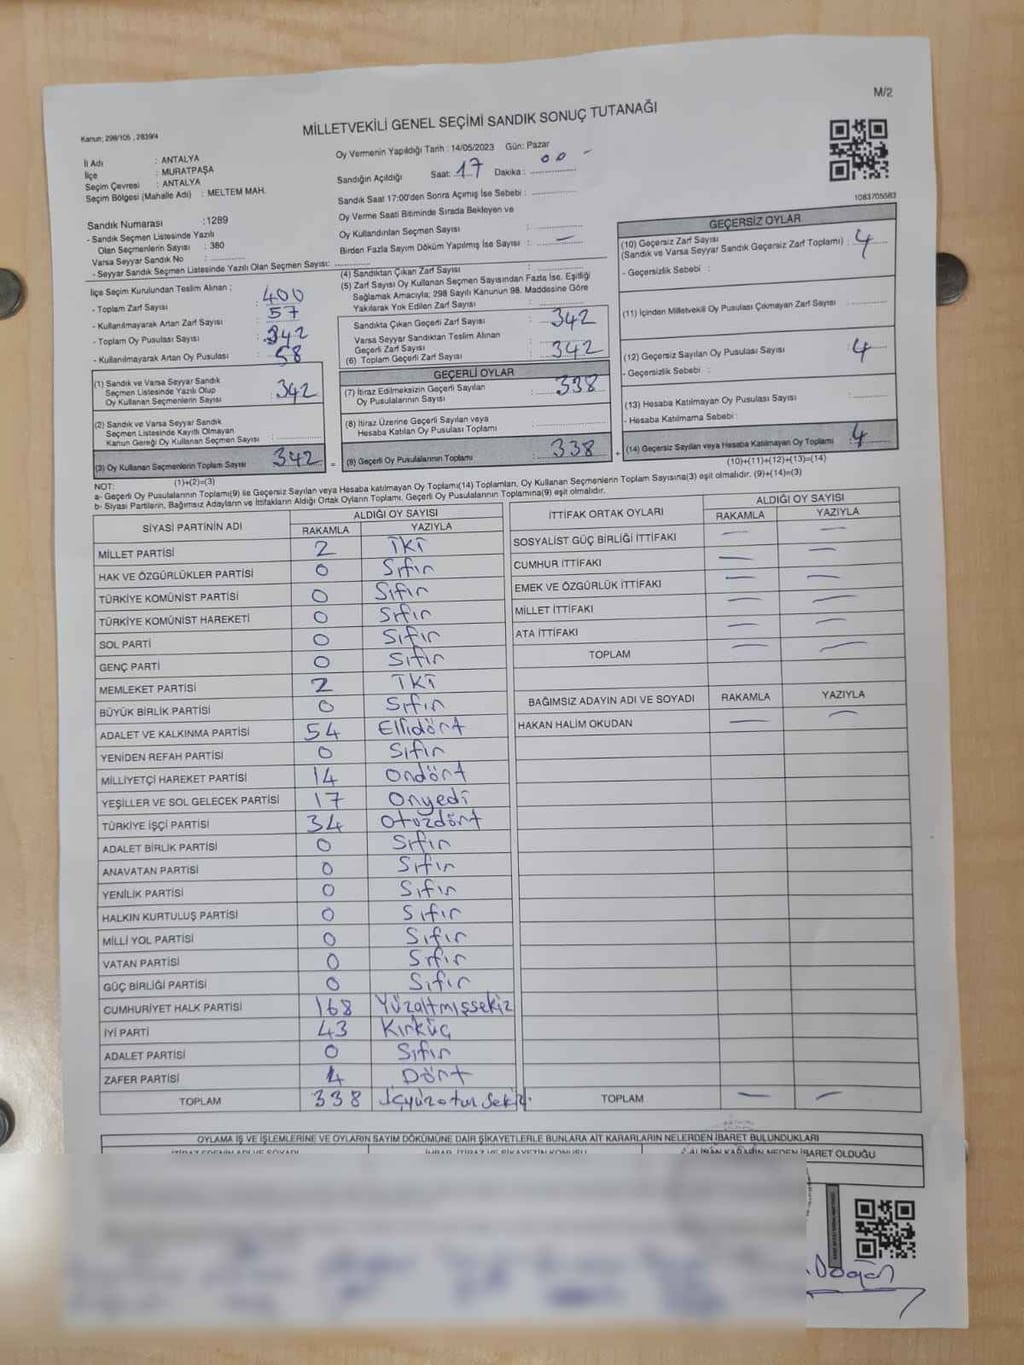 M/2
Kanun: 298/105 , 2839/4
MİLLETVEKİLİ GENEL SEÇİMİ SANDIK SONUÇ TUTANAĞI
İl Adı : ANTALYA
İlçe : MURATPAŞA
Seçim Çevresi : ANTALYA
Seçim Bölgesi (Mahalle Adı) : MELTEM MAH.
Oy Vermenin Yapıldığı Tarih : 14/05/2023 Gün: Pazar
Sandığın Açıldığı Saat: 17 Dakika : 00
Sandık Saat 17:00'den Sonra Açılmış İse Sebebi :
Oy Verme Saati Bitiminde Sırada Bekleyen ve
Oy Kullandırılan Seçmen Sayısı :
Birden Fazla Sayım Döküm Yapılmış İse Sayısı : —
1083705583
Sandık Numarası :1289
- Sandık Seçmen Listesinde Yazılı
Olan Seçmenlerin Sayısı : 380
Varsa Seyyar Sandık No :
- Seyyar Sandık Seçmen Listesinde Yazılı Olan Seçmen Sayısı:
İlçe Seçim Kurulundan Teslim Alınan ;
- Toplam Zarf Sayısı : 400
- Kullanılmayarak Artan Zarf Sayısı : 57
- Toplam Oy Pusulası Sayısı : 342
- Kullanılmayarak Artan Oy Pusulası : 58
(1) Sandık ve Varsa Seyyar Sandık
Seçmen Listesinde Yazılı Olup
Oy Kullanan Seçmenlerin Sayısı : 342
(2) Sandık ve Varsa Seyyar Sandık
Seçmen Listesinde Kayıtlı Olmayan
Kanun Gereği Oy Kullanan Seçmen Sayısı :
(3) Oy Kullanan Seçmenlerin Toplam Sayısı 342
(1)+(2)=(3)
(4) Sandıktan Çıkan Zarf Sayısı :
(5) Zarf Sayısı Oy Kullanan Seçmen Sayısından Fazla İse, Eşitliği
Sağlamak Amacıyla; 298 Sayılı Kanunun 98. Maddesine Göre
Yakılarak Yok Edilen Zarf Sayısı :
Sandıkta Çıkan Geçerli Zarf Sayısı : 342
Varsa Seyyar Sandıktan Teslim Alınan
Geçerli Zarf Sayısı :
(6) Toplam Geçerli Zarf Sayısı : 342
GEÇERLİ OYLAR
(7) İtiraz Edilmeksizin Geçerli Sayılan
Oy Pusulalarının Sayısı : 338
(8) İtiraz Üzerine Geçerli Sayılan veya
Hesaba Katılan Oy Pusulası Toplamı :
= (9) Geçerli Oy Pusulalarının Toplamı : 338
GEÇERSİZ OYLAR
(10) Geçersiz Zarf Sayısı
(Sandık ve Varsa Seyyar Sandık Geçersiz Zarf Toplamı) : 4
- Geçersizlik Sebebi :
(11) İçinden Milletvekili Oy Pusulası Çıkmayan Zarf Sayısı :
(12) Geçersiz Sayılan Oy Pusulası Sayısı : 4
- Geçersizlik Sebebi :
(13) Hesaba Katılmayan Oy Pusulası Sayısı :
- Hesaba Katılmama Sebebi :
+ (14) Geçersiz Sayılan veya Hesaba Katılmayan Oy Toplamı : 4
(10)+(11)+(12)+(13)=(14)
NOT:
a- Geçerli Oy Pusulalarının Toplamı(9) ile Geçersiz Sayılan veya Hesaba katılmayan Oy Pusulası Toplamı(14) Toplamları, Oy Kullanan Seçmenlerin Toplam Sayısına(3) eşit olmalıdır. (9)+(14)=(3)
b- Siyasi Partilerin, Bağımsız Adayların ve İttifakların Aldığı Ortak Oyların Toplamı, Geçerli Oy Pusulalarının Toplamına(9) eşit olmalıdır.
SİYASİ PARTİNİN ADI ALDIĞI OY SAYISI
RAKAMLA YAZIYLA
MİLLET PARTİSİ 2 İki
HAK VE ÖZGÜRLÜKLER PARTİSİ 0 Sıfır
TÜRKİYE KOMÜNİST PARTİSİ 0 Sıfır
TÜRKİYE KOMÜNİST HAREKETİ 0 Sıfır
SOL PARTİ 0 Sıfır
GENÇ PARTİ 0 Sıfır
MEMLEKET PARTİSİ 2 İki
BÜYÜK BİRLİK PARTİSİ 0 Sıfır
ADALET VE KALKINMA PARTİSİ 54 Ellidört
YENİDEN REFAH PARTİSİ 0 Sıfır
MİLLİYETÇİ HAREKET PARTİSİ 14 Ondört
YEŞİLLER VE SOL GELECEK PARTİSİ 17 Onyedi
TÜRKİYE İŞÇİ PARTİSİ 34 Otuzdört
ADALET BİRLİK PARTİSİ 0 Sıfır
ANAVATAN PARTİSİ 0 Sıfır
YENİLİK PARTİSİ 0 Sıfır
HALKIN KURTULUŞ PARTİSİ 0 Sıfır
MİLLİ YOL PARTİSİ 0 Sıfır
VATAN PARTİSİ 0 Sıfır
GÜÇ BİRLİĞİ PARTİSİ 0 Sıfır
CUMHURİYET HALK PARTİSİ 168 Yüzaltmışsekiz
İYİ PARTİ 43 Kırküç
ADALET PARTİSİ 0 Sıfır
ZAFER PARTİSİ 4 Dört
TOPLAM 338
İTTİFAK ORTAK OYLARI ALDIĞI OY SAYISI
RAKAMLA YAZIYLA
SOSYALİST GÜÇ BİRLİĞİ İTTİFAKI — —
CUMHUR İTTİFAKI — —
EMEK VE ÖZGÜRLÜK İTTİFAKI — —
MİLLET İTTİFAKI — —
ATA İTTİFAKI — —
TOPLAM — —
BAĞIMSIZ ADAYIN ADI VE SOYADI RAKAMLA YAZIYLA
HAKAN HALİM OKUDAN — —
TOPLAM — —
OYLAMA İŞ VE İŞLEMLERİNE VE OYLARIN SAYIM DÖKÜMÜNE DAİR ŞİKAYETLERLE BUNLARA AİT KARARLARIN NELERDEN İBARET BULUNDUKLARI
İBARET OLDUĞU
Doğan